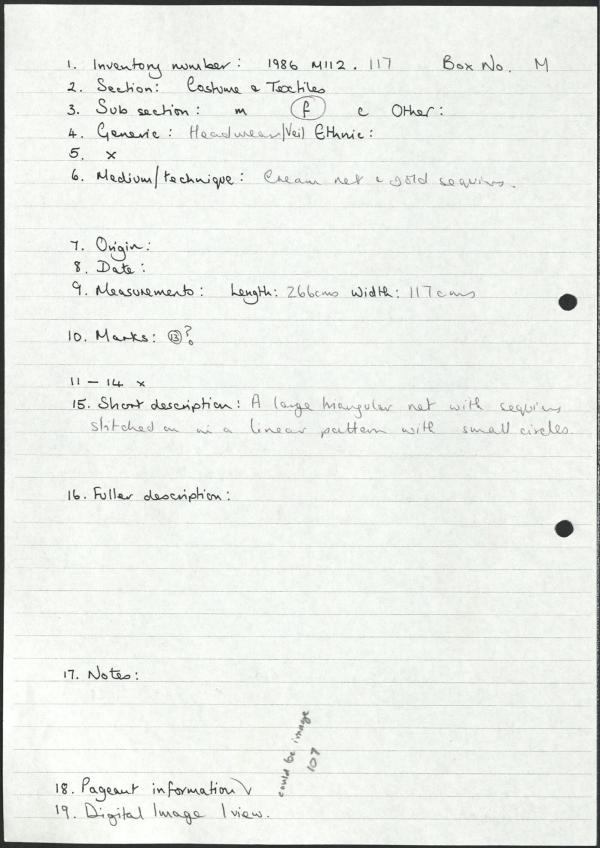 1. Inventory number: 1986 M112.117 Box No. M
2. Section: Costume & Textiles
3. Sub section: m f c Other:
4. Generic: Headwear/Veil Ethnic:
5. x
6. Medium/technique: Cream net & gold sequins.
7. Origin:
8. Date:
9. Measurements: Length: 266cms Width: 117cms
10. Marks: 13?
11 - 14 x
15. Short description: A large triangular net with sequins
stitched on in a linear pattern with small circles.
16. Fuller description:
17. Notes:
could be image
107
18. Pageant information √
19. Digital Image 1 view.